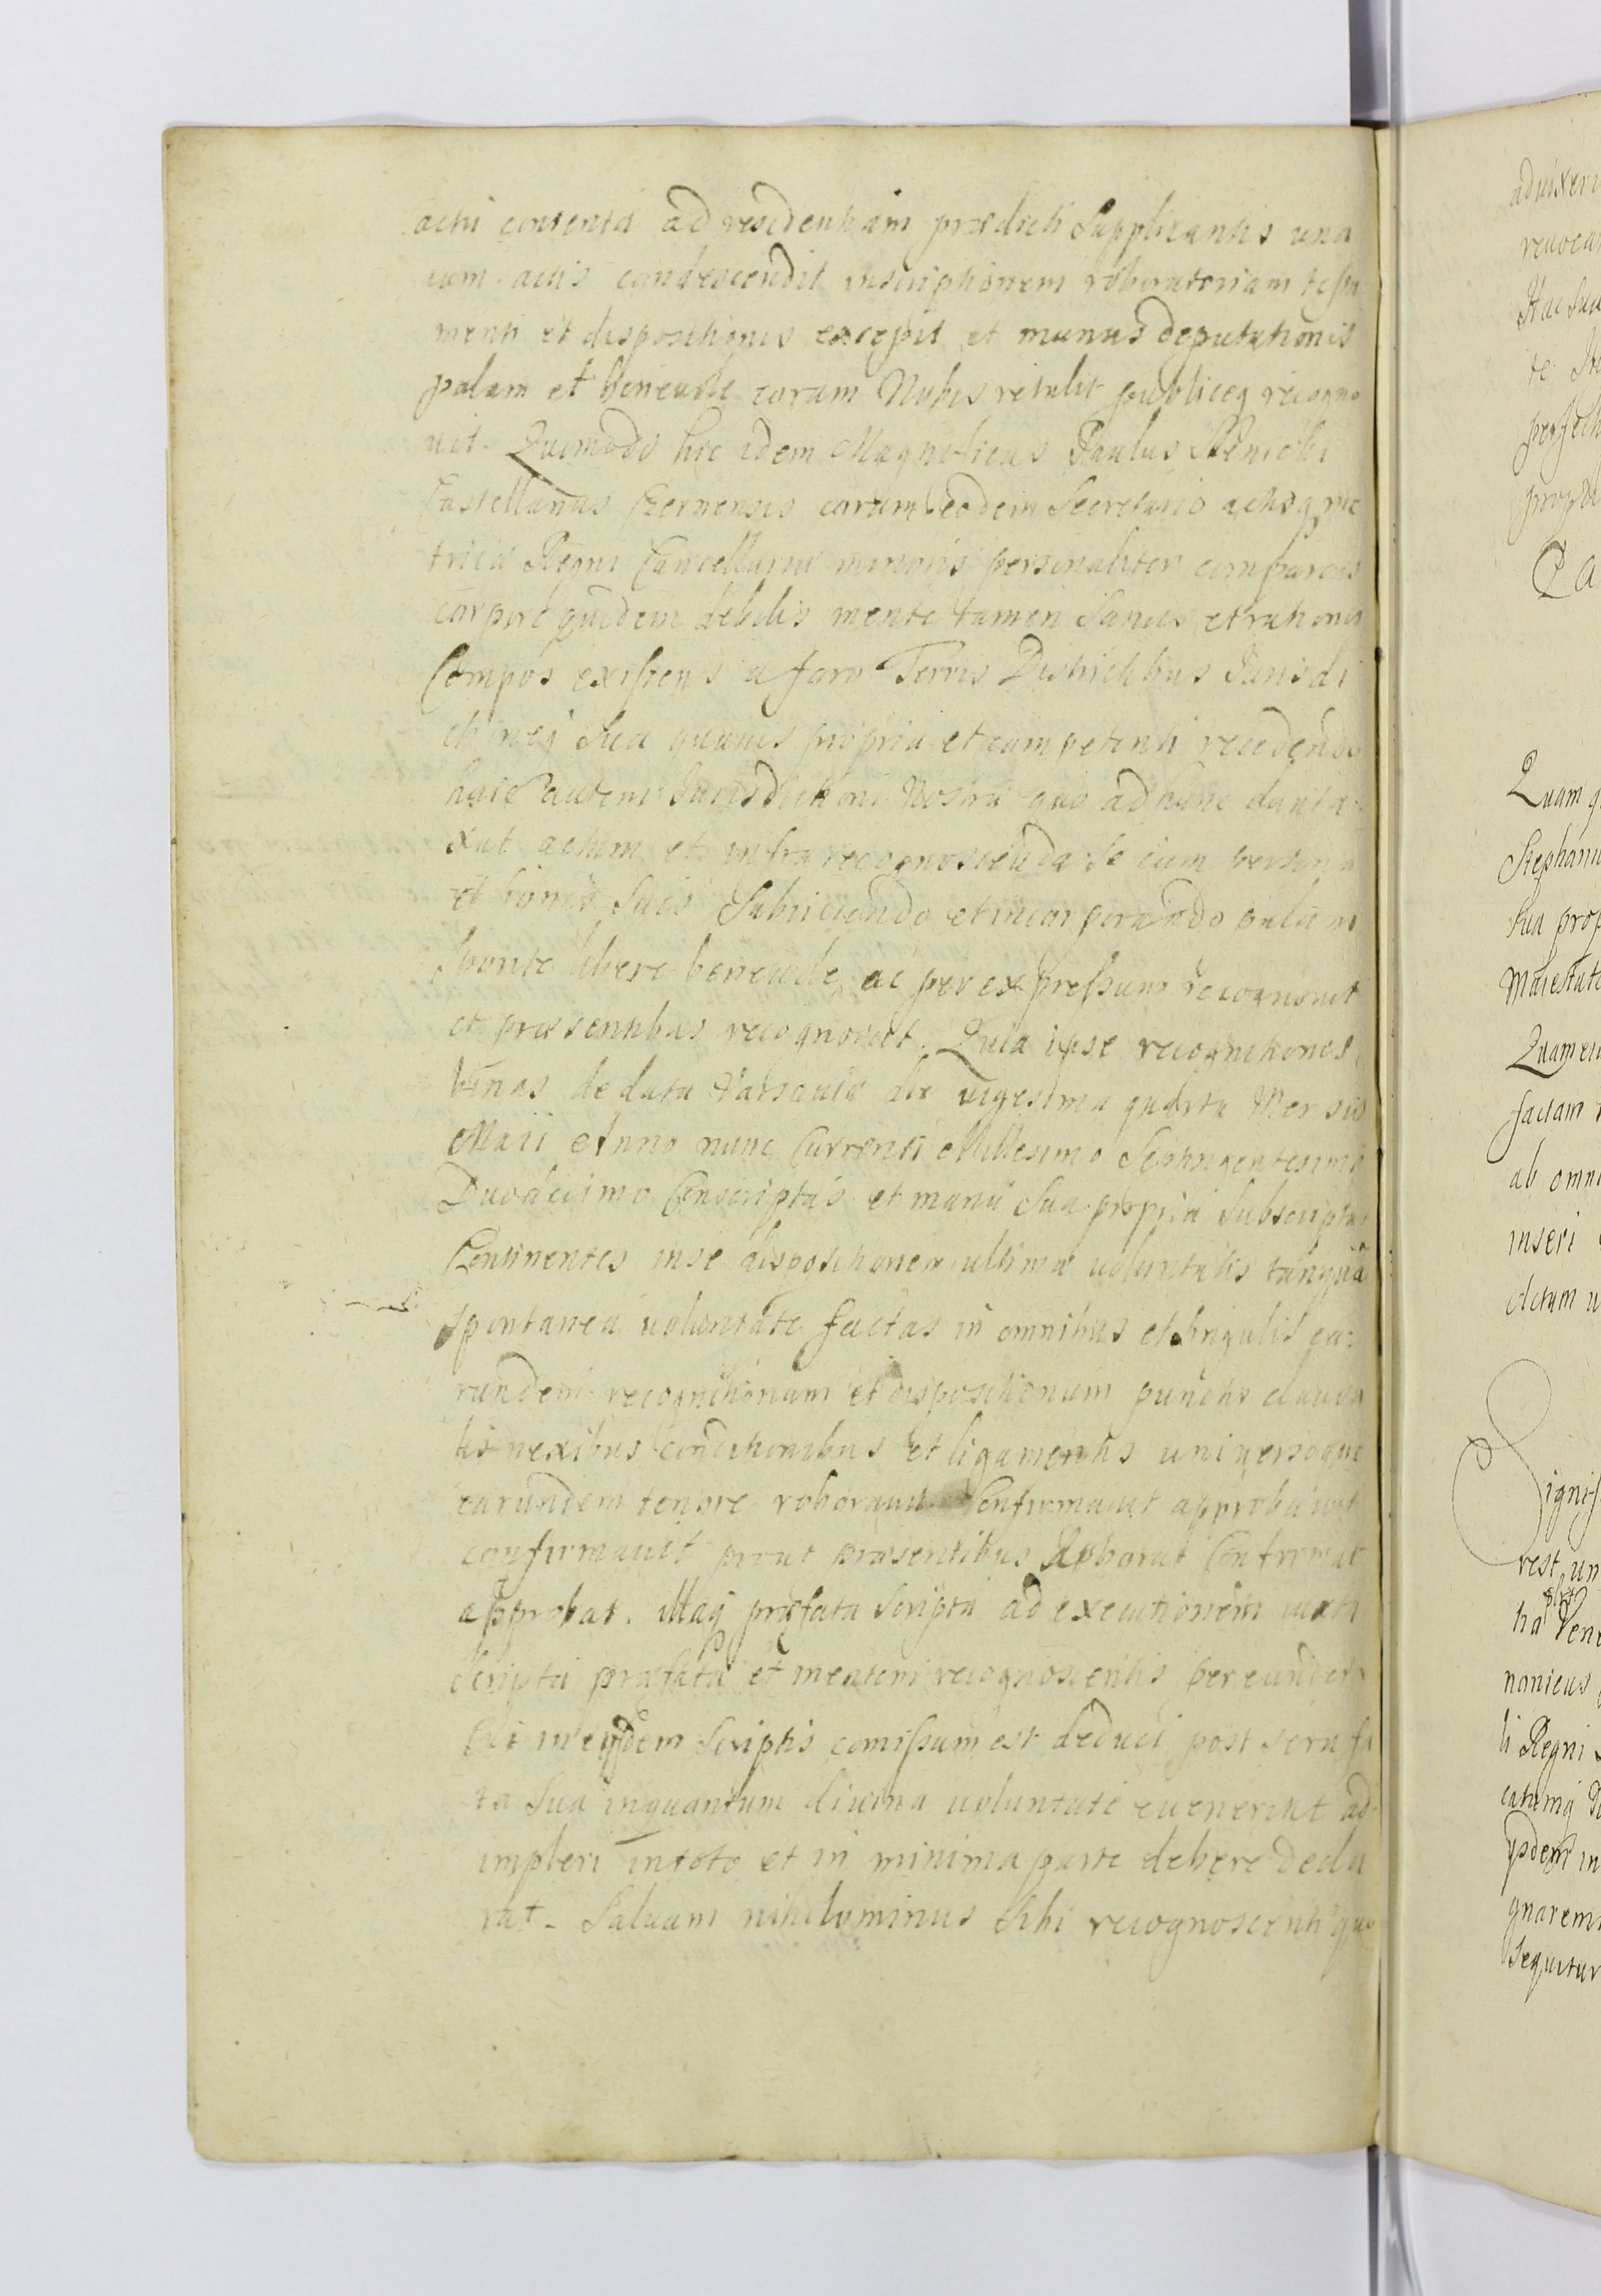 actu contenta ad residentiam prædicti Supplicantis una
cum actis condescendit inscriptionem roboratoriam testa
menti et dispositionis excepit et munus deputationis
palam et benevole coram Nobis retulit publiceq recogno
uit. Quomodo hic idem Magnificus Paulus
Castellanus coram eodem Secretario actisq me
trices Regni Cancellariæ minoris personaliter comparens
corpore quidem debilis mente tamen Sanus et rationis
Compos existens a foro Terris Districtibus Jurisdi
ctioneq Sua quauis propria et competenti recedendo
huic autem Jurisdictioni Nostræ quo ad hunc dunta
xat actum et infra recognoscenda Se cum
et bonis Suis Subiiciendo et incorporando palam
Sponte libere beneuole ac per expressum recognouit
et præsentibus recognoscit. Quia ipse recognitiones
binas de data Varsauiæ die uigesima quarta Mensis
Maii Anno nunc Currenti Millesimo Septingentesimo
Duodecimo Conscriptas et manu Sua propria Subscriptas
Continentes in se dispositionem ultimæ uoluntatis tanquã
spontanea uoluntate factas in omnibus et Singulis ea
rundem recognitionum et dispositionum punctis clausu
lis nexibus conditionibus et ligamentis uniuersoque
earundem tenore roborauit Confirmauit approbauit
confirmauit prout præsentibus Roborat Confirmat
approbat. Illaq præfata Scripta ad executionem iuxta
Scripta præfata et mentem recognoscentis per eundem
Cui in eisdem Scriptis comissum est deduci post sera fa
ta Sua inquantum diuina uoluntate euenerint ad
impleri in toto et in minima parte debere decla
rat. Saluam nihilominus Sibi recognoscenti quo
aduixeri
reuocan
Hac Sua
te
perfecti
Quam q
Stephanu
Sua prop
Maiestate
Quam eiu
factam
ab omni
inseri
Actum u
Signif
rest un
nonicus
li Regni
catumq
ysdem in
gnarem
Sequitur